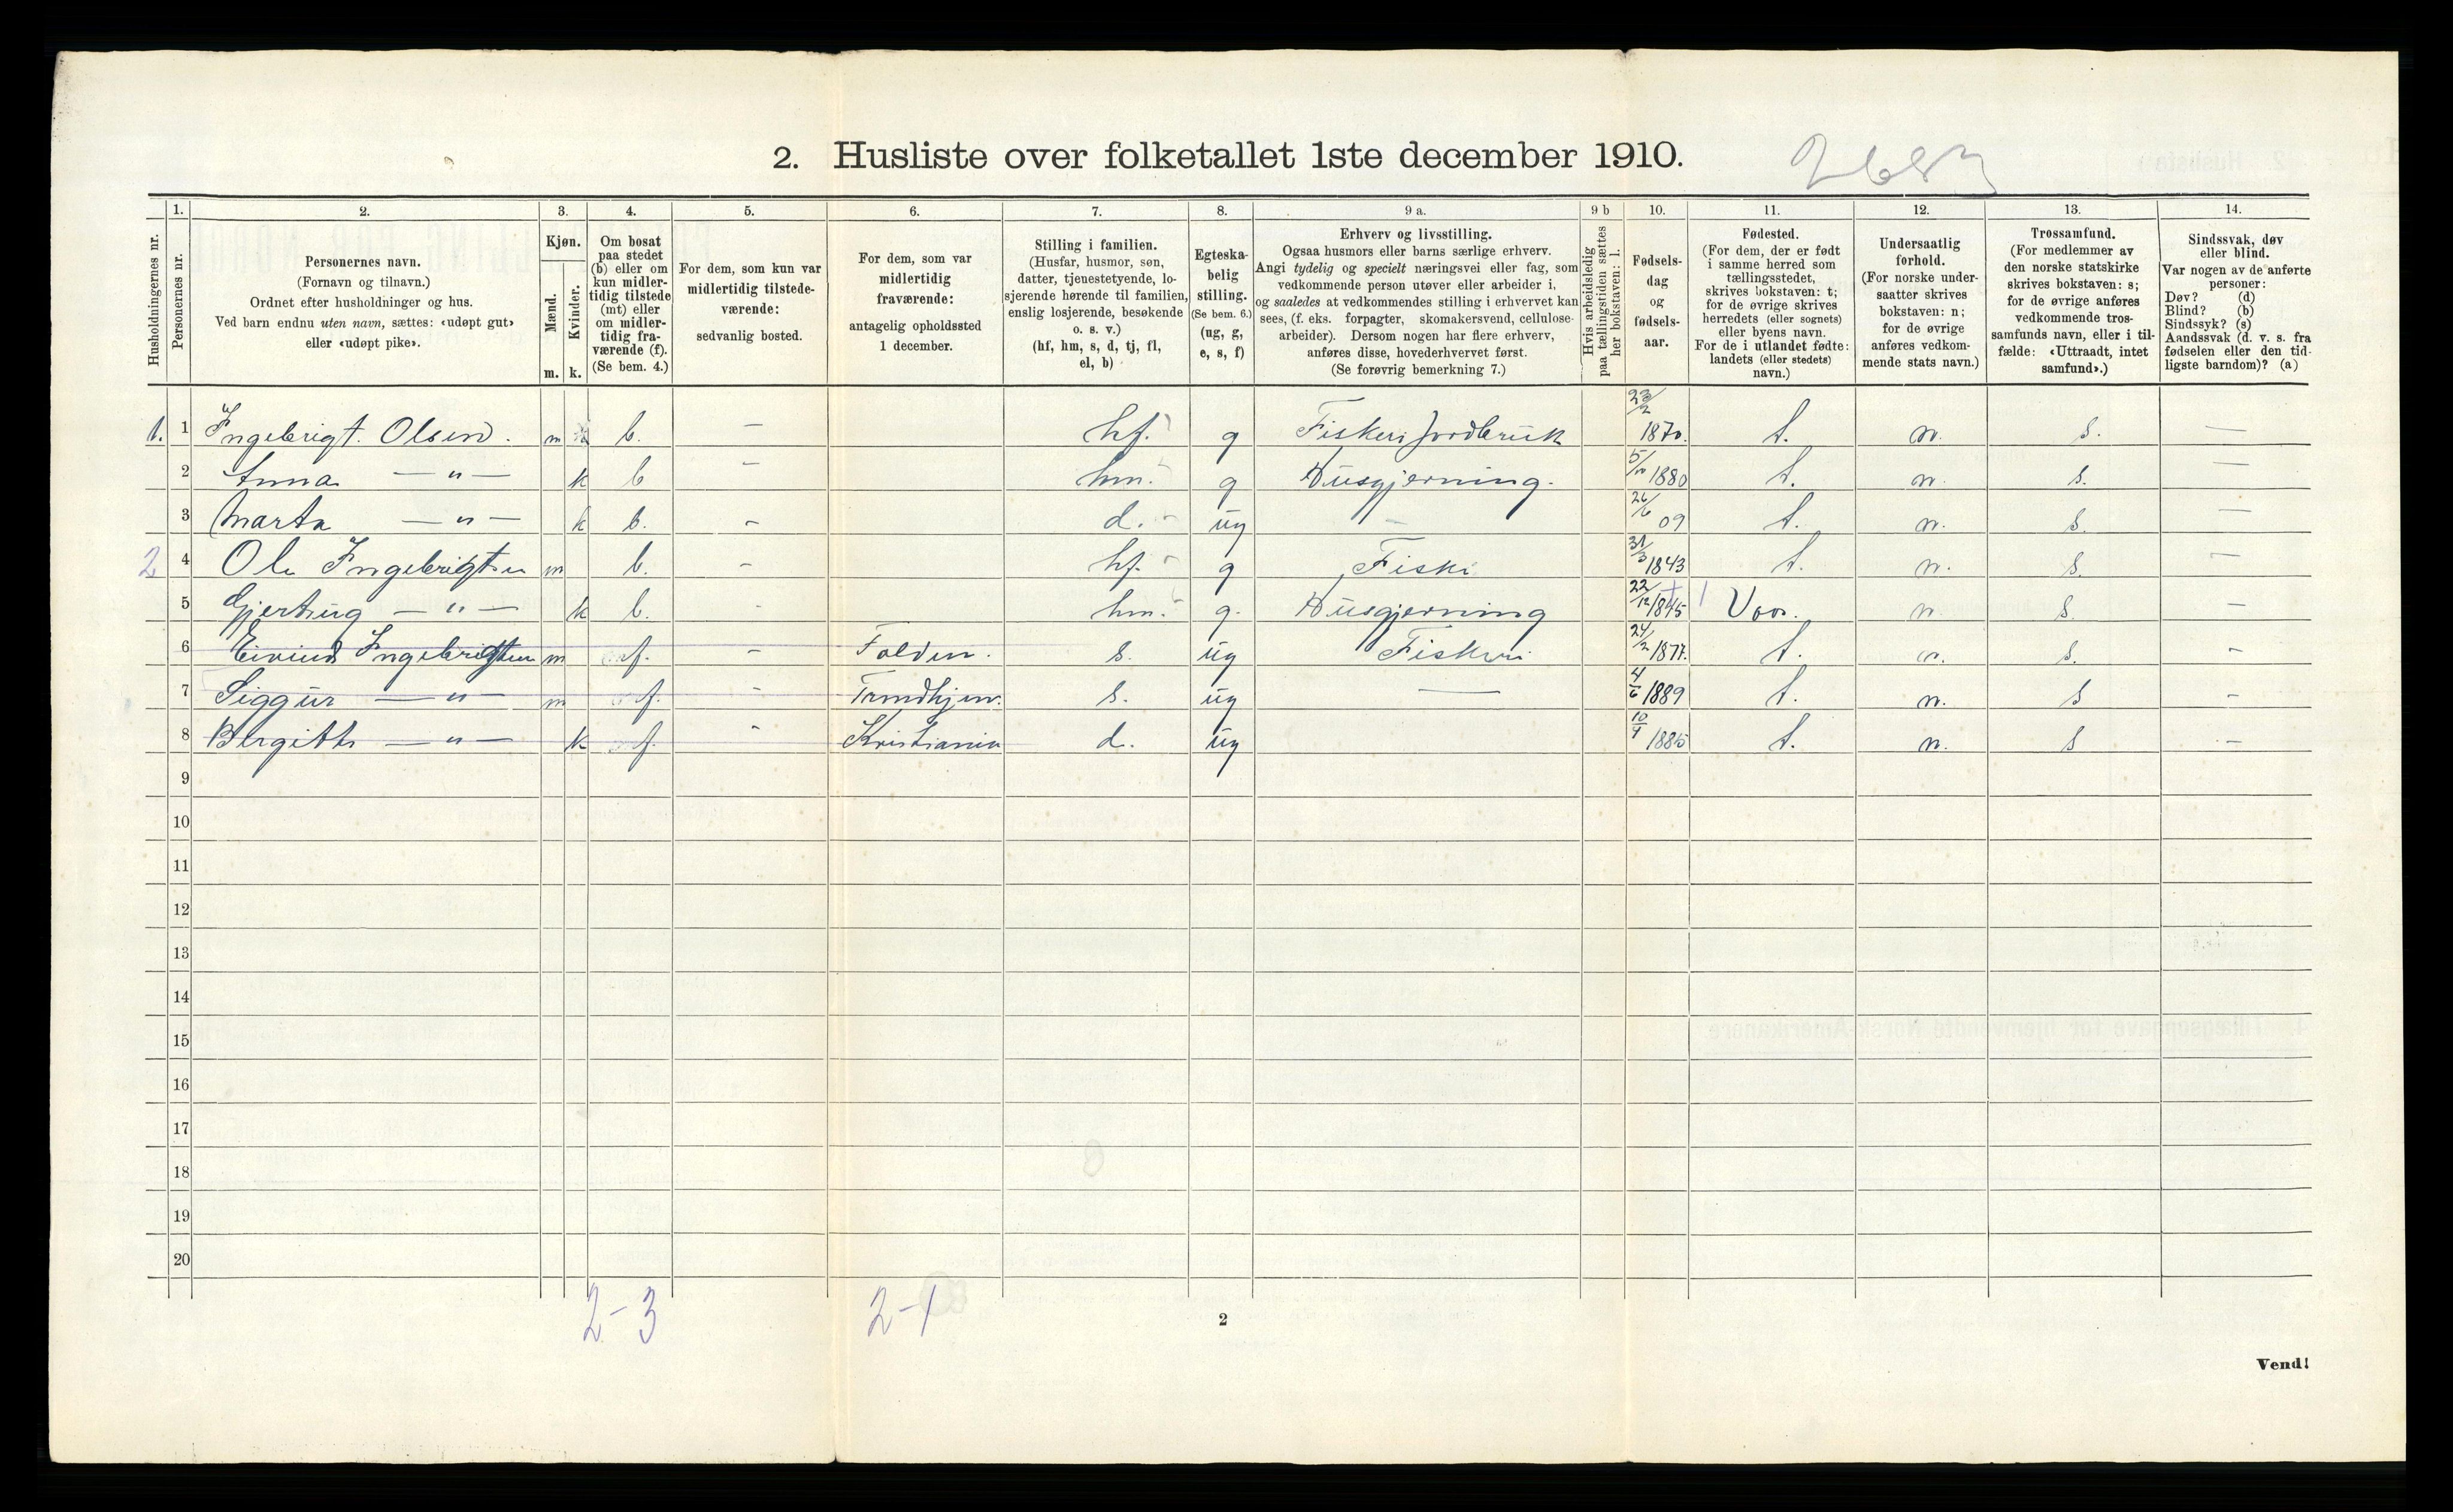 2. Husliste over folketallet 1ste december 1910.
1. 2. 3. 4. 5. 6. 7. 8. 9 a. 9 b 10. 11. 12. 13. 14.
Husholdningernes nr.
Personernes nr.
Personernes navn.
(Fornavn og tilnavn.)
Ordnet efter husholdninger og hus.
Ved barn endnu uten navn, sættes: «udøpt gut»
eller «udøpt pike».
Kjøn.
Mænd.
Kvinder.
m. k.
Om bosat
paa stedet
(b) eller om
kun midler-
tidig tilstede
(mt) eller
om midler-
tidig fra-
værende (f).
(Se bem. 4.)
For dem, som kun var
midlertidig tilstede-
værende:
sedvanlig bosted.
For dem, som var
midlertidig
fraværende:
antagelig opholdssted
1 december.
Stilling i familien.
(Husfar, husmor, søn,
datter, tjenestetyende, lo-
sjerende hørende til familien,
enslig losjerende, besøkende
o. s. v.)
(hf, hm, s, d, tj, fl,
el, b)
Egteska-
belig
stilling.
(Se bem. 6.)
(ug, g,
e, s, f)
Erhverv og livsstilling.
Ogsaa husmors eller barns særlige erhverv.
Angi tydelig og specielt næringsvei eller fag, som
vedkommende person utøver eller arbeider i,
og saaledes at vedkommendes stilling i erhvervet kan
sees, (f. eks. forpagter, skomakersvend, cellulose-
arbeider). Dersom nogen har flere erhverv,
anføres disse, hovederhvervet først.
(Se forøvrig bemerkning 7.)
Hvis arbeidsledig
paa tællingstiden sættes
her bokstaven: l.
Fødsels-
dag
og
fødsels-
aar.
Fødested.
(For dem, der er født
i samme herred som
tællingsstedet,
skrives bokstaven: t;
for de øvrige skrives
herredets (eller sognets)
eller byens navn.
For de i utlandet fødte:
landets (eller stedets)
navn.)
Undersaatlig
forhold.
(For norske under-
saatter skrives
bokstaven: n;
for de øvrige
anføres vedkom-
mende stats navn.)
Trossamfund.
(For medlemmer av
den norske statskirke
skrives bokstaven: s;
for de øvrige anføres
vedkommende tros-
samfunds navn, eller i til-
fælde: «Uttraadt, intet
samfund».)
Sindssvak, døv
eller blind.
Var nogen av de anførte
personer:
Døv? (d)
Blind? (b)
Sindssyk? (s)
Aandssvak (d. v. s. fra
fødselen eller den tid-
ligste barndom)? (a)
1. 1 Ingebrigt. Olsen. m b. — hf. g Fiskeri Jordbruk 23/2 1870. t. n. s. —
2 Anna — " — k b — hm. g Husgjerning. 1880 t. n. s. —
3 Marta — " — k b. — d. ug — 26/6 09 t. n. s. —
2 4 Ole Ingebrigtsen m b. — hf. g Fiski 31/3 1843 t. n. s. —
5 Gjertrug — " — k b. - hm. g. Husgjerning 22/12 1845 Vor. n. s. —
6 Eivind Ingebrigtsen m f. — Folden. s. ug Fiskeri 24/2 1877. t. n. s. —
7 Siggur — " — m f. - Trondhjem. s. ug — 4/6 1889 t. n. s —
8 Bergith — " — k f. - Kristiania d. ug 10/4 1885 t. n. s —
9
10
11
12
13
14
15
16
17
18
19
20
2-3 2-1
2
Vend!